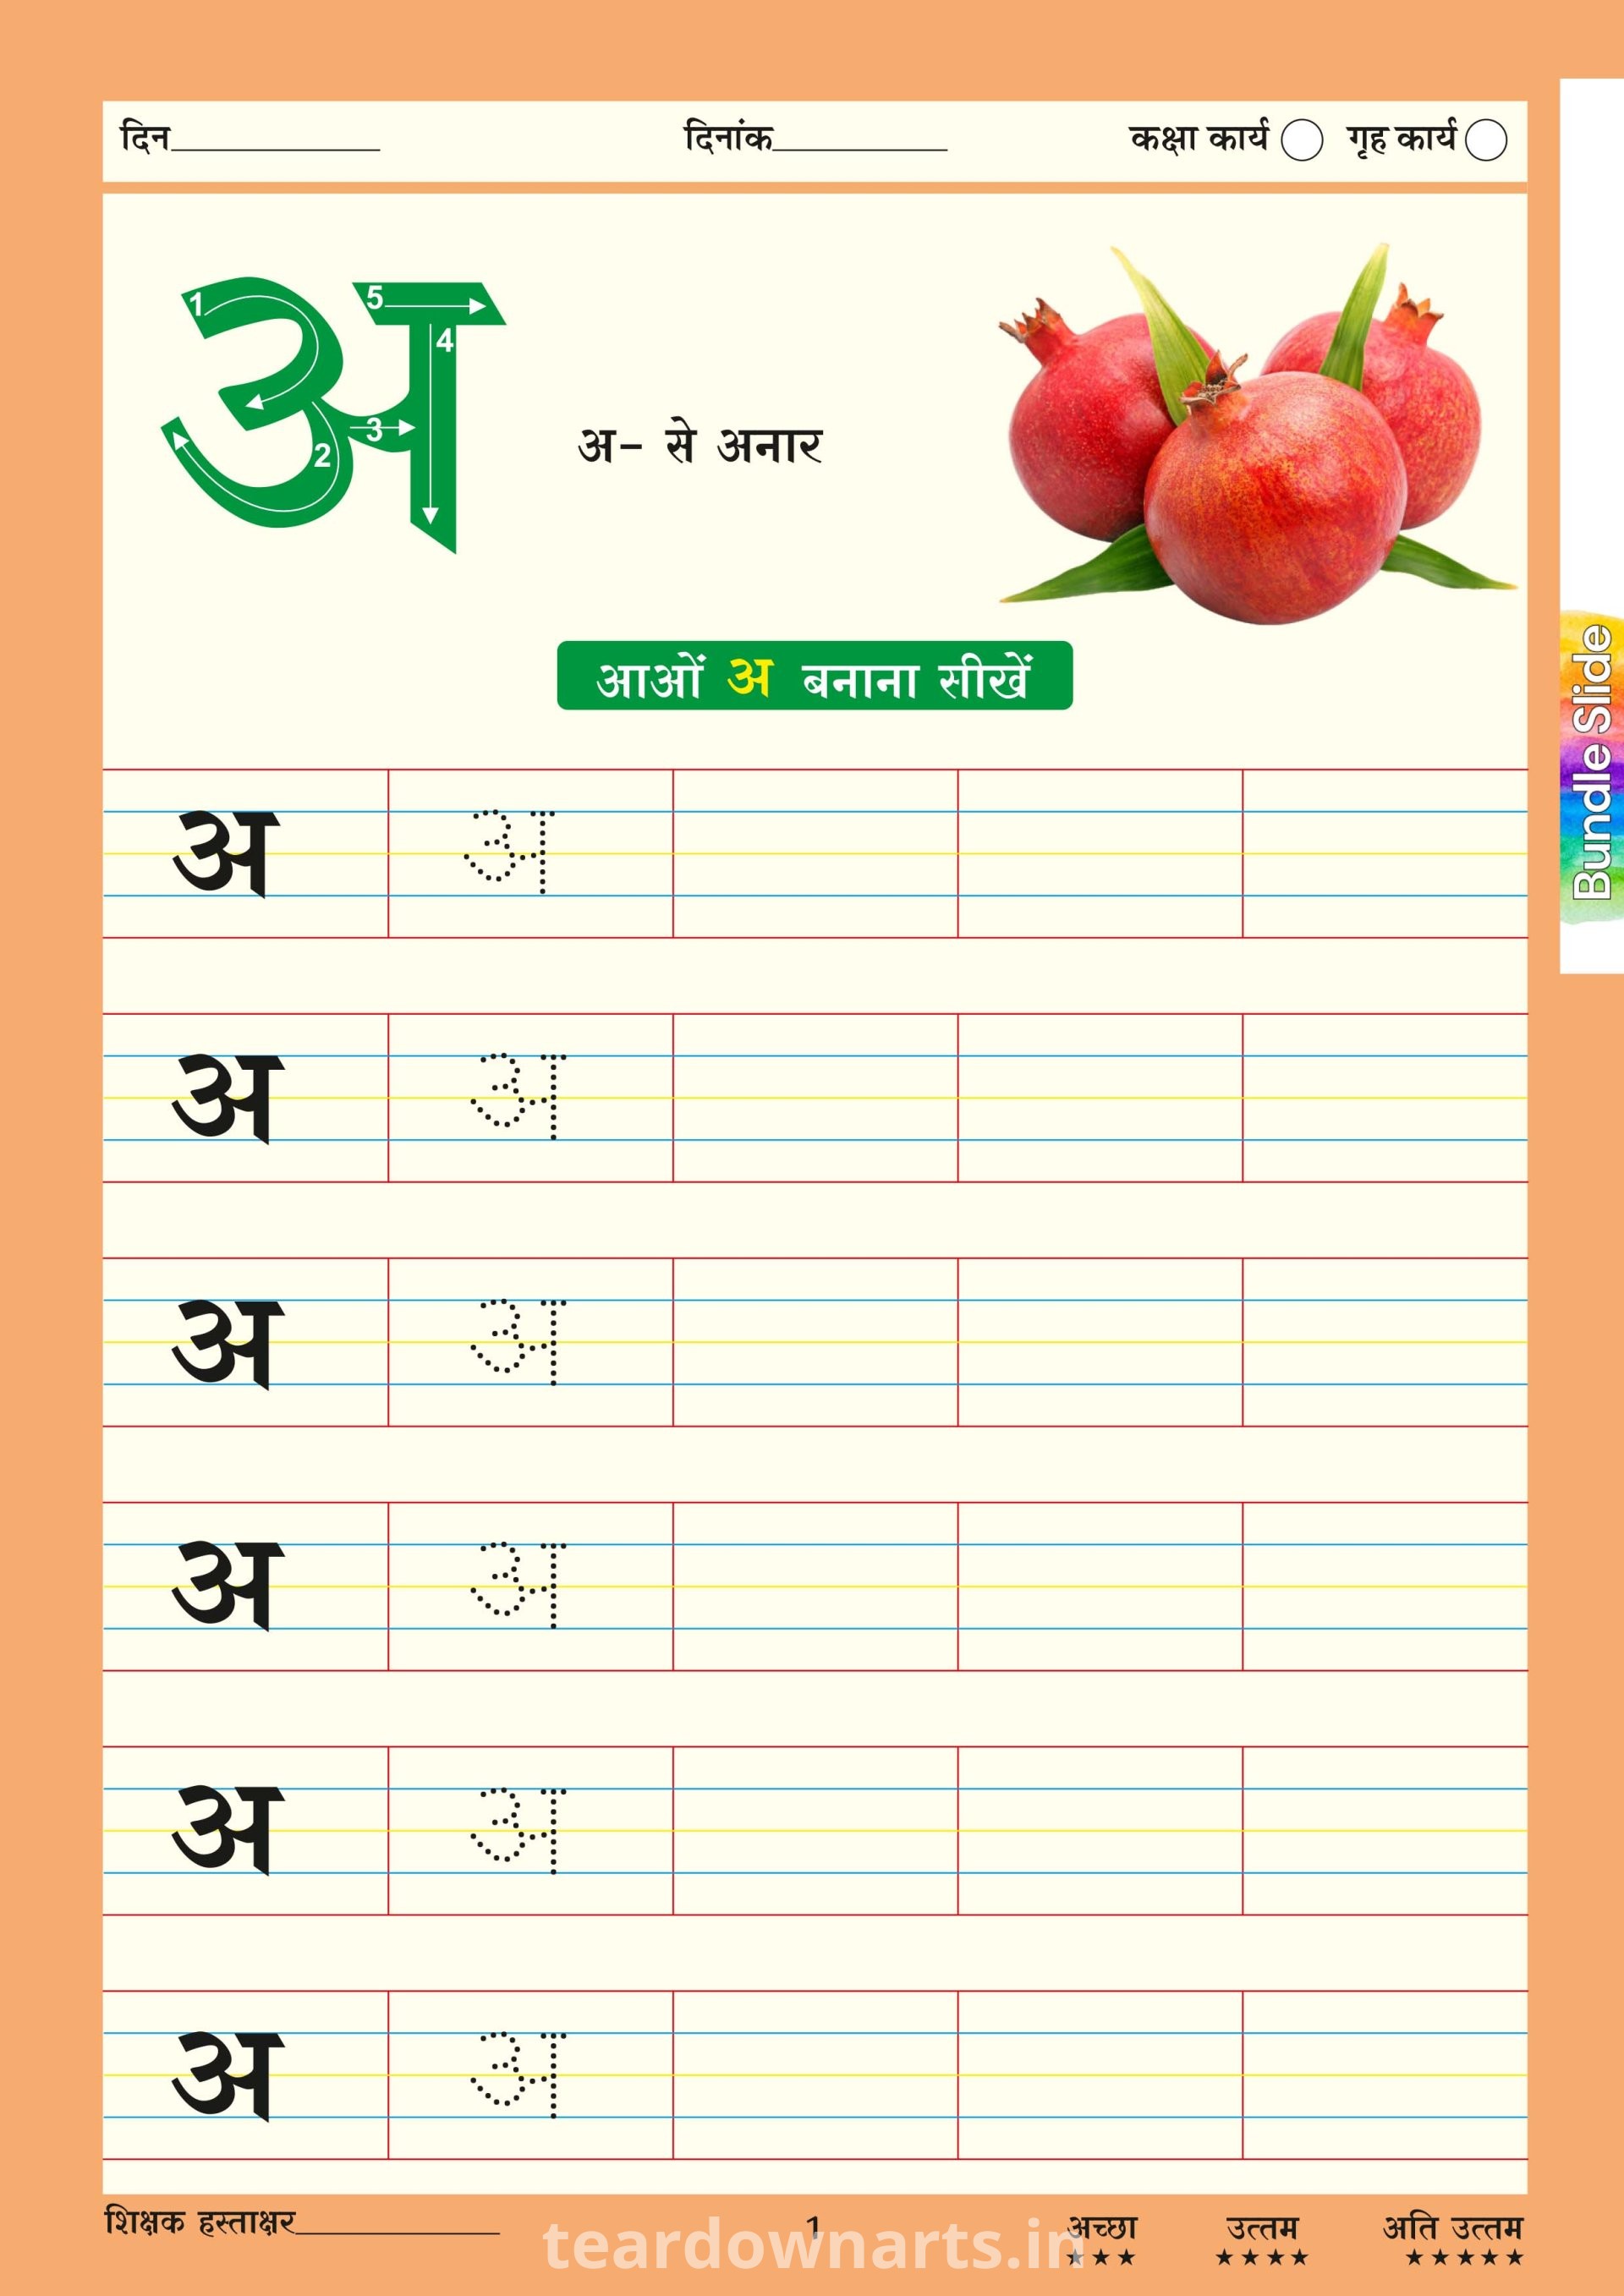 दिन__________ दिनांक__________ कक्षा कार्य गृह कार्य
अ
1
5
4
3
2
अ- से अनार
आओं अ बनाना सीखें
Bundle Slide
अ अ
अ अ
अ अ
अ अ
अ अ
अ अ
शिक्षक हस्ताक्षर__________ 1 अच्छा उत्तम अति उत्तम
★★★ ★★★★ ★★★★★
teardownarts.in